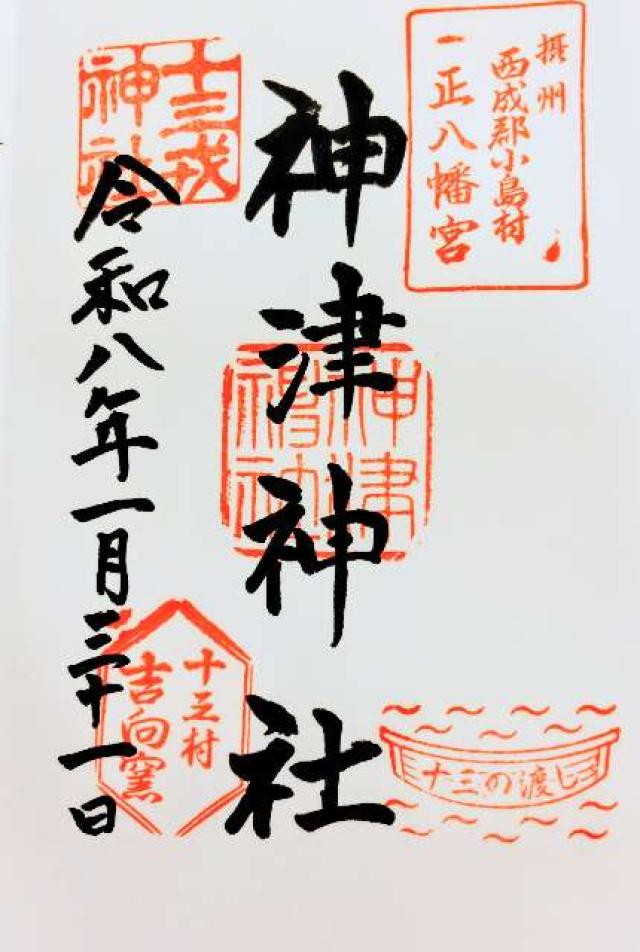 摂州
西成郡小島村
一正八幡宮
神津神社
神津
神社
十三戎
神社
令和八年一月三十一日
十三村
吉向窯
十三の渡し